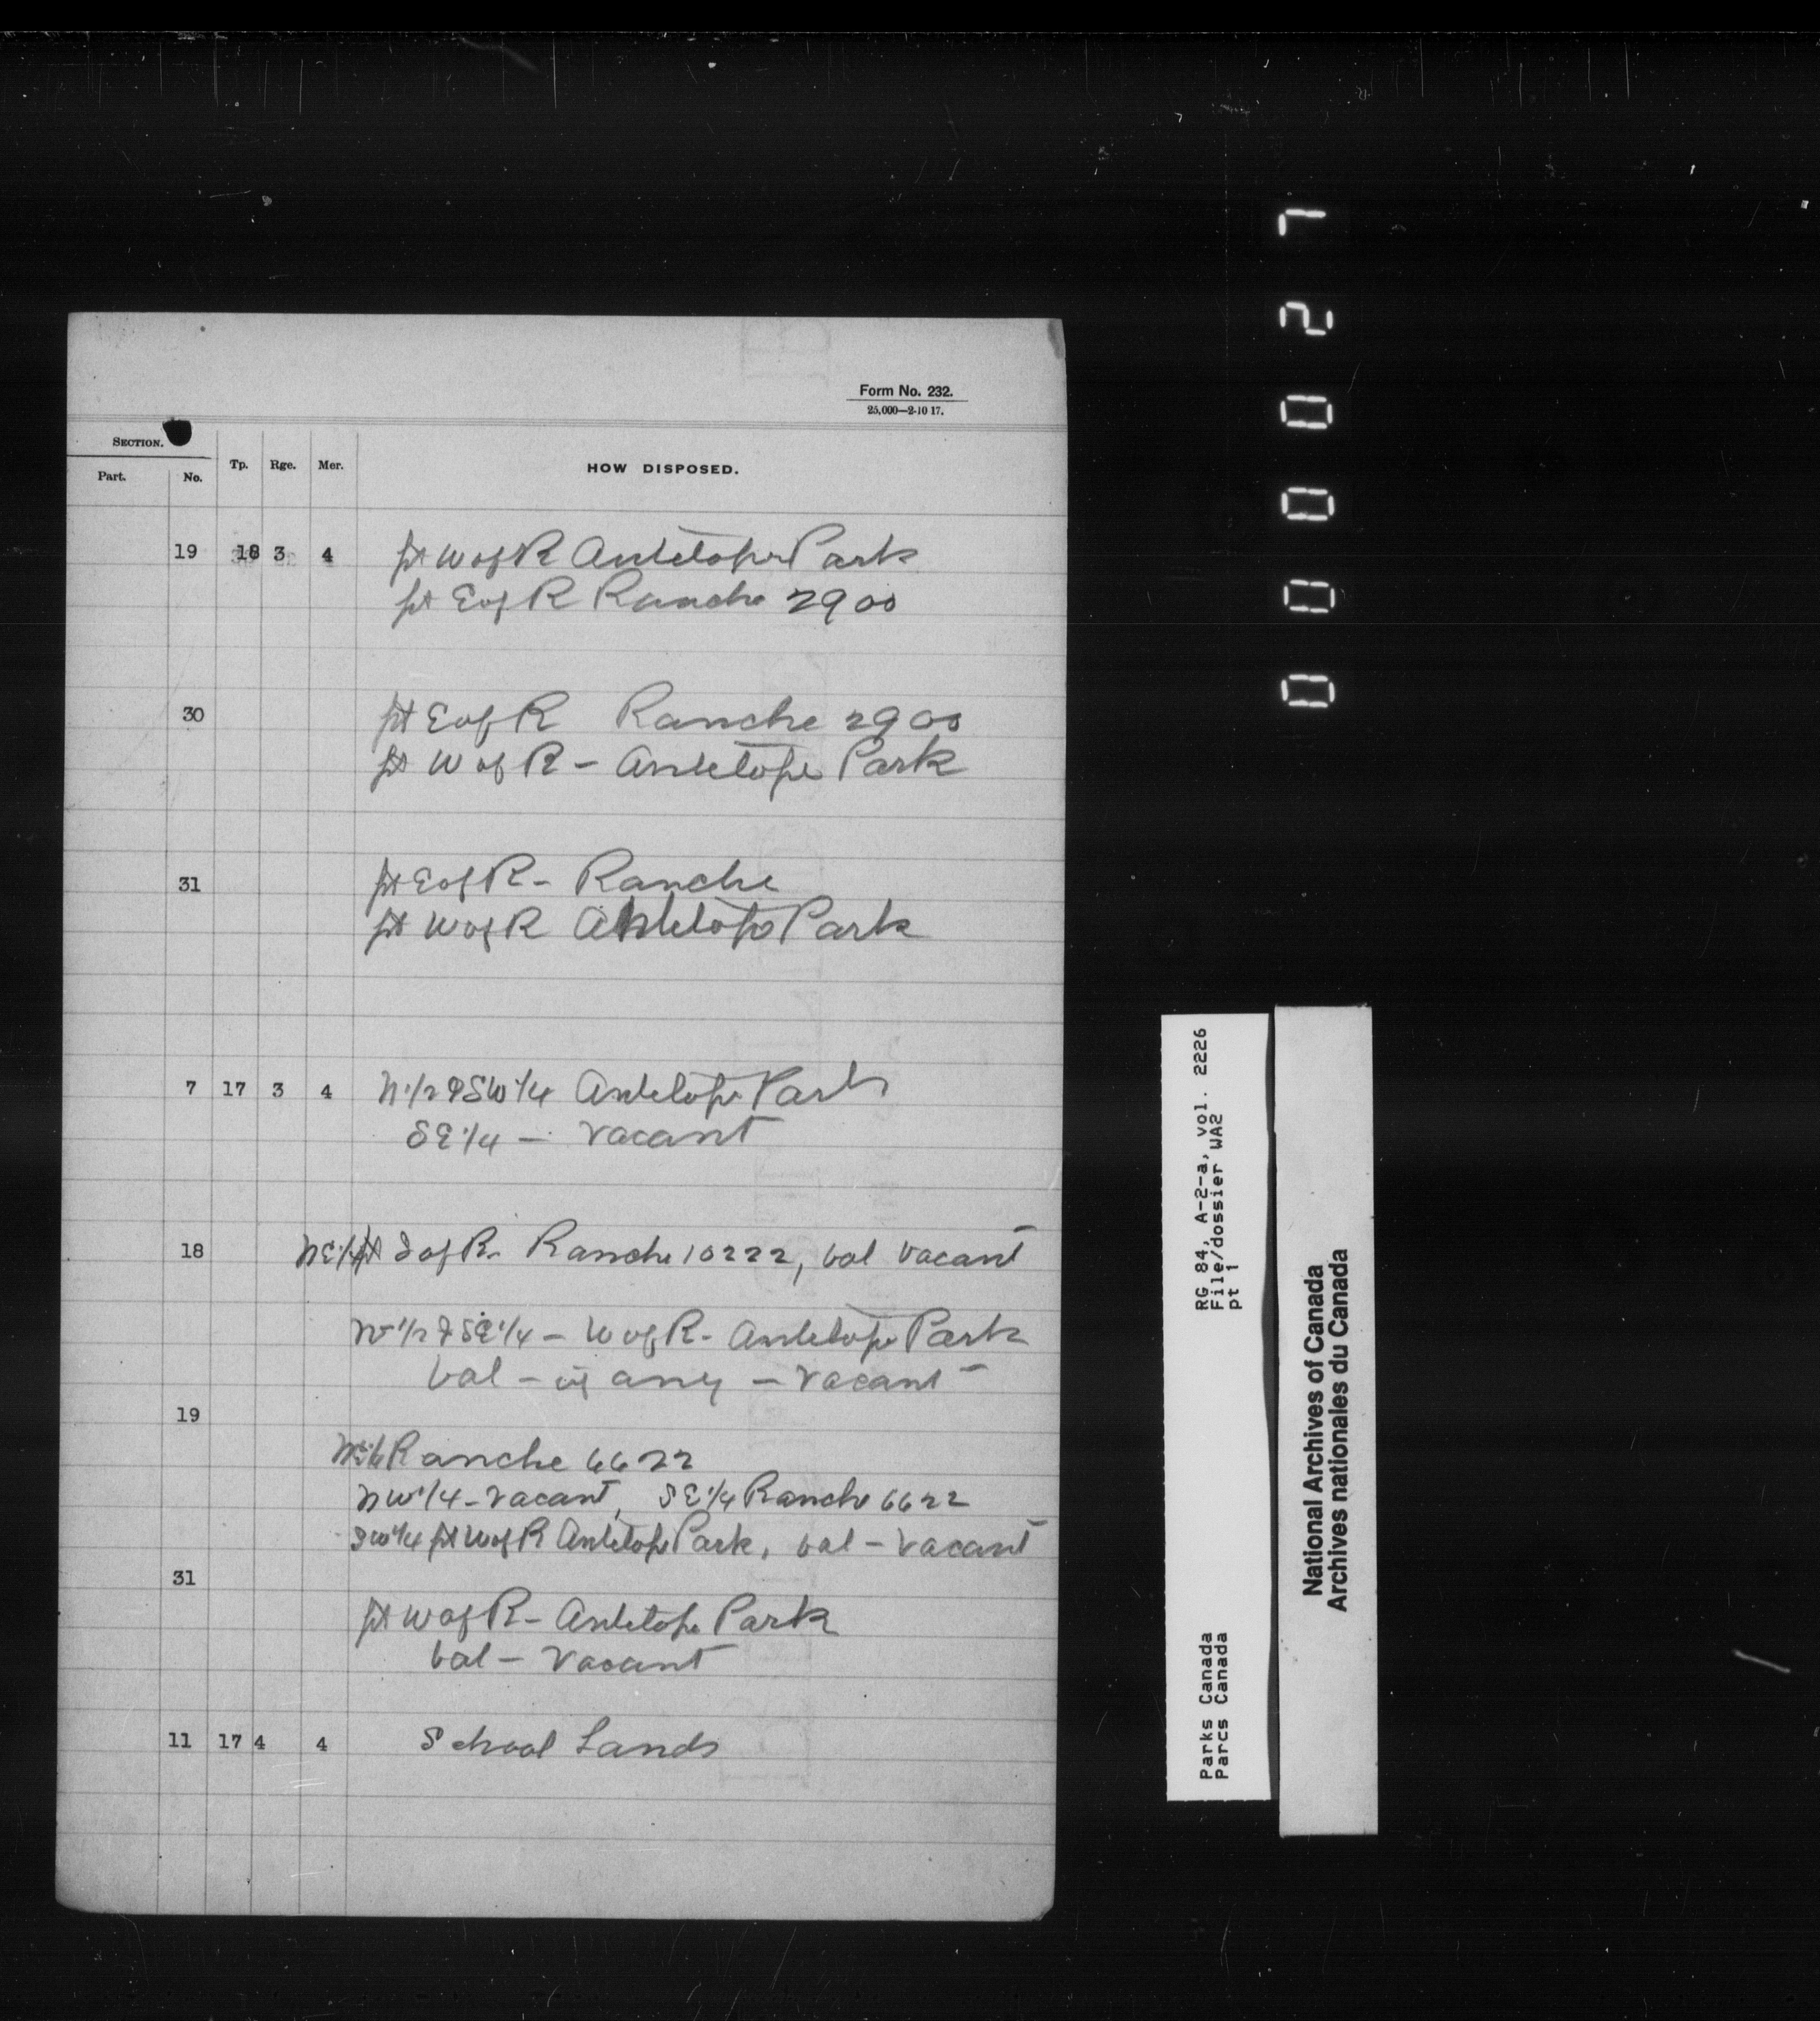 Form No. 232.
25,000—2-10 17.
SECTION.
Part. No. Tp. Rge. Mer. HOW DISPOSED.
19 18 3 4 pt W of R Antelope Park
pt E of R Ranche 2900
30 pt E of R Ranche 2900
pt W of R - Antelope Park
31 pt E of R - Ranche
pt W of R Antelope Park
7 17 3 4 N 1/2 & SW 1/4 Antelope Park
SE 1/4 - Vacant
18 NE 1/4 pt of R. Ranche 10222, bal Vacant
1/2 & SE 1/4 - W of R. Antelope Park
bal - if any - Vacant
19
Ranche 6622
NW 1/4 - Vacant, SE 1/4 Ranche 6622
SW 1/4 pt W of R Antelope Park, bal - Vacant
31
pt W of R - Antelope Park
bal - Vacant
11 17 4 4 School Lands
000027
RG 84, A-2-a, vol. 2226
File/dossier WA2
pt 1
Parks Canada
Parcs Canada
National Archives of Canada
Archives nationales du Canada